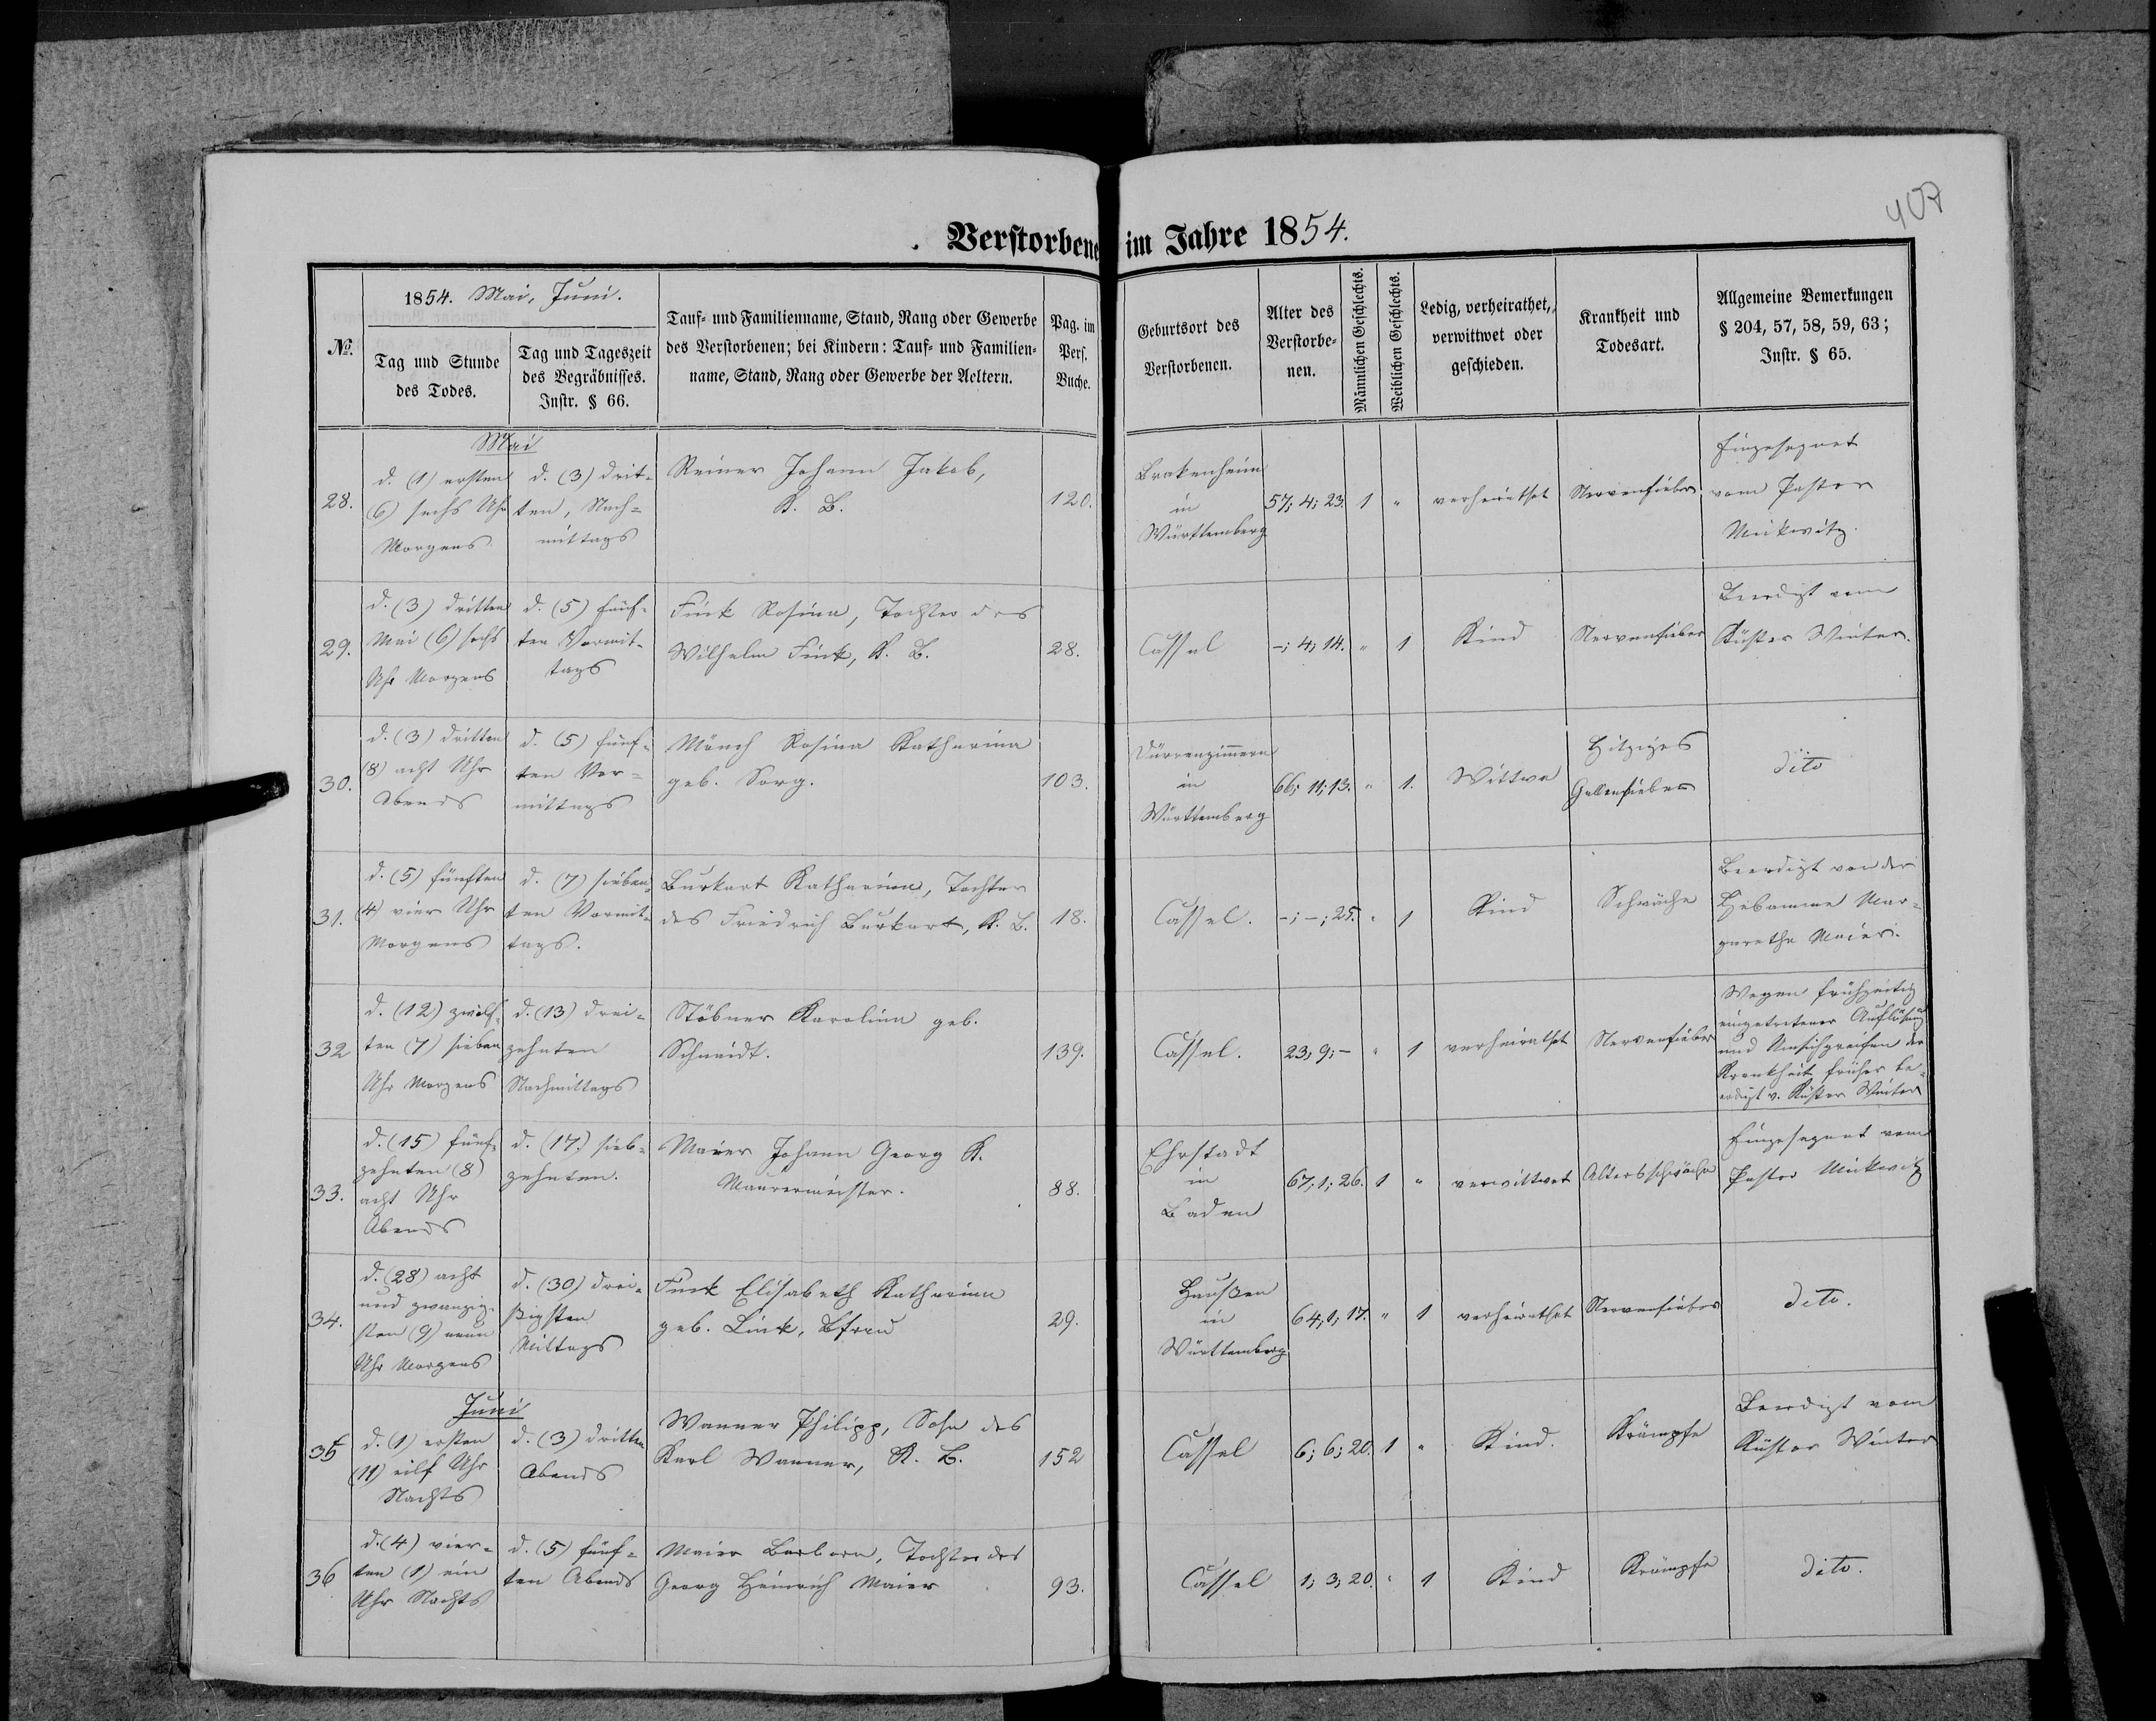 407
Verstorbene im Jahre 1854.
№.
1854. Mai, Juni.
Tag und Stunde
des Todes.
Tag und Tageszeit
des Begräbnisses.
Instr. § 66.
Tauf- und Familienname, Stand, Rang oder Gewerbe
des Verstorbenen; bei Kindern: Tauf- und Familien-
name, Stand, Rang oder Gewerbe der Aeltern.
Pag. im
Pers.
Buche.
Geburtsort des
Verstorbenen.
Alter des
Verstorbe-
nen.
Männlichen Geschlechts.
Weiblichen Geschlechts.
Ledig, verheirathet,
verwittwet oder
geschieden.
Krankheit und
Todesart.
Allgemeine Bemerkungen
§ 204, 57, 58, 59, 63;
Instr. § 65.
Mai
28.
d. (1) ersten
(6) sechs Uhr
Morgens
d. (3) drit-
ten, Nach-
mittags
Reiner Johann Jakob,
K. B.
120.
Brakenheim
in
Württemberg
57; 4; 23.
1
"
verheirathet
Nervenfieber
Eingesegnet
vom Pastor
Mickwitz.
29.
d. (3) dritten
Mai (6) sechs
Uhr Morgens
d. (5) fünf-
ten Vormit-
tags
Fink Rosina, Tochter des
Wilhelm Fink, K. B.
28.
Cassel
-; 4; 14.
"
1
Kind
Nervenfieber
Beerdigt vom
Küster Winter.
30.
d. (3) dritten
(8) acht Uhr
Abends
d. (5) fünf-
ten Vor-
mittags
Mönch Rosina Katharina
geb. Sorg.
103.
Dürrenzimmern
in
Württemberg
66; 11; 13.
"
1.
Wittwe
Hitziges
Gallenfieber
dito
31.
d. (5) fünften
(4) vier Uhr
Morgens
d. (7) sieben-
ten Vormit-
tags.
Burkart Katharina, Tochter
des Friedrich Burkart, K. B.
18.
Cassel.
-; -; 25.
"
1
Kind
Schwäche
Beerdigt von der
Hebamme Mar-
garetha Maier.
32
d. (12) zwölf-
ten (7) sieben
Uhr Morgens
d. (13) drei-
zehnten
Nachmittags
Stöbner Karolina geb.
Schmidt.
139.
Cassel.
23; 9; -
"
1
verheirathet
Nervenfieber
Wegen frühzeitig
eingetretener Auflösung
und Umsichgreifen der
Krankheit früher be-
erdigt v. Küster Winter
33.
d. (15) fünf-
zehnten (8)
acht Uhr
Abends
d. (17.) sieb-
zehnten.
Maier Johann Georg K.
Maurermeister.
88.
Ehrstadt
in
Baden
67; 1; 26.
1
"
verwittwet
Altersschwäche
Eingesegnet vom
Pastor Mickwitz
34.
d. (28) acht
und zwanzig-
sten (9) neun
Uhr Morgens
d. (30) drei-
ßigsten
Mittags
Fink Elisabeth Katharina
geb. Link,
29.
Haußen
in
Württemberg
64; 1; 17.
"
1
verheirathet
Nervenfieber
dito.
Juni
35
d. (1) ersten
(11) eilf Uhr
Nachts
d. (3) dritten
Abends
Wanner Philipp, Sohn des
Karl Wanner, K. B.
152
Cassel
6; 6; 20.
1
"
Kind.
Krämpfe
Beerdigt vom
Küster Winter
36
d. (4) vier-
ten (1) ein
Uhr Nachts
d. (5) fünf-
ten Abends
Maier Barbara, Tochter des
Georg Heinrich Maier
93.
Cassel
1; 3; 20.
"
1
Kind
Krämpfe
dito.